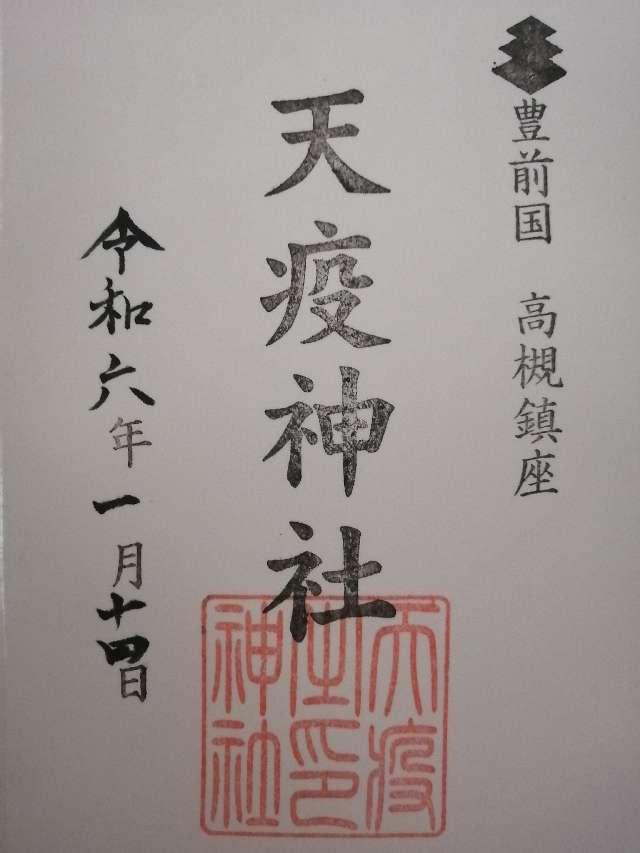 豊前国 高槻鎮座
天疫神社
令和六年一月十四日
天疫
宝印
神社